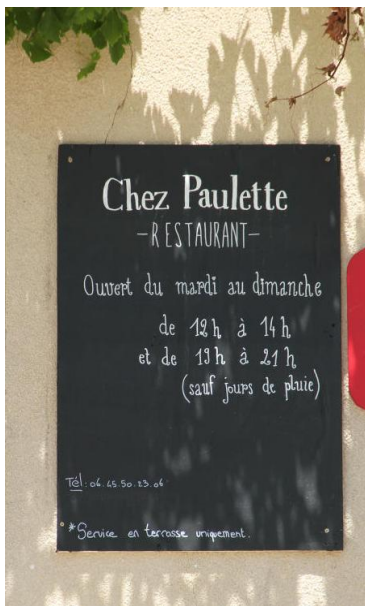 Chez Paulette
-RESTAURANT-
Ouvert du mardi au dimanche
de 12h à 14h
et de 19h à 21h
(sauf jours de pluie)
Tél: 06.45.50.23.06
*Service en terrasse uniquement.